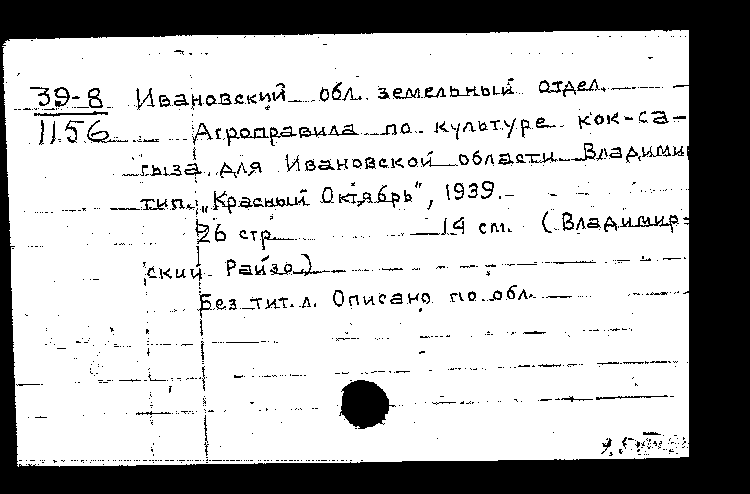 39-8 Ивановский обл. земельный отдел.
1156 Агроправила по культуре кок-са-
гыза для Ивановской области. Владимир
тип. „Красный Октябрь", 1939.
26 стр. 14 см. (Владимир-
ский Райзо)
Без тит. л. Описано по обл.